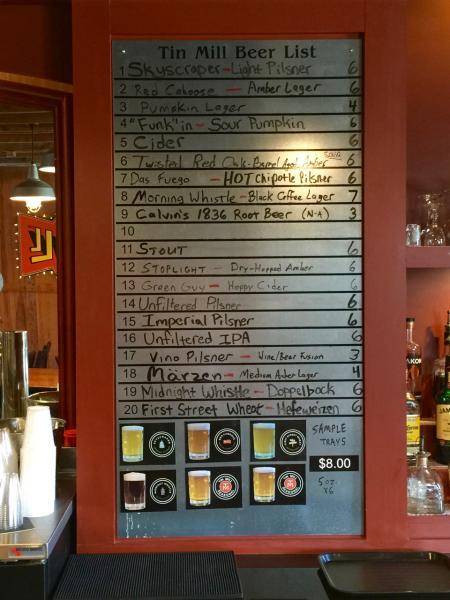 Tin Mill Beer List
1 Skyscraper - Light Pilsner 6
2 Red Caboose - Amber Lager 6
3 Pumpkin Lager 4
4 "Funk"in - Sour Pumpkin 6
5 Cider 6
6 Twisted Red Oak-Barrel Aged Amber SOUR 6
7 Das Fuego - HOT Chipotle Pilsner 6
8 Morning Whistle - Black Coffee Lager 7
9 Calvin's 1836 Root Beer (N-A) 3
10
11 STOUT 6
12 STOPLIGHT - Dry-Hopped Amber 6
13 Green Guy - Hoppy Cider 6
14 Unfiltered Pilsner 6
15 Imperial Pilsner 6
16 Unfiltered IPA 6
17 Vino Pilsner - Wine/Beer Fusion 3
18 Märzen - Medium Amber Lager 4
19 Midnight Whistle - Doppelbock 6
20 First Street Wheat - Hefeweizen 6
SAMPLE
TRAYS
$8.00
5oz.
x6